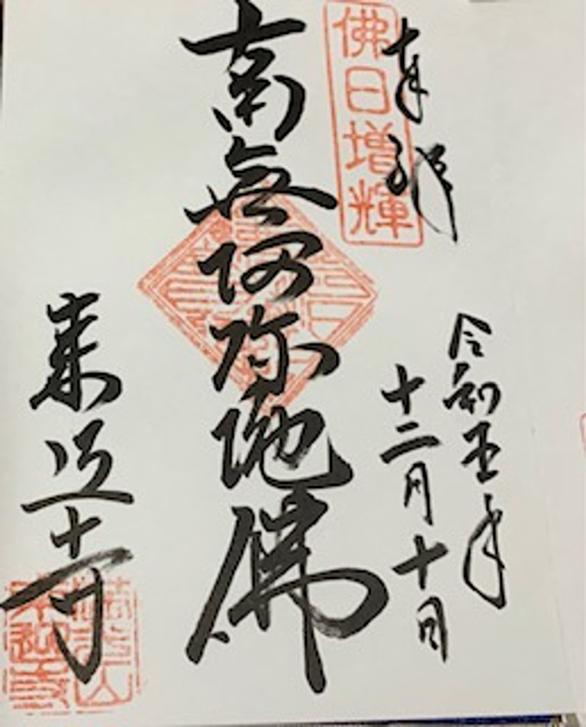 奉拝
佛日増輝
令和五年
十二月十日
南無阿弥陀佛
来迎寺